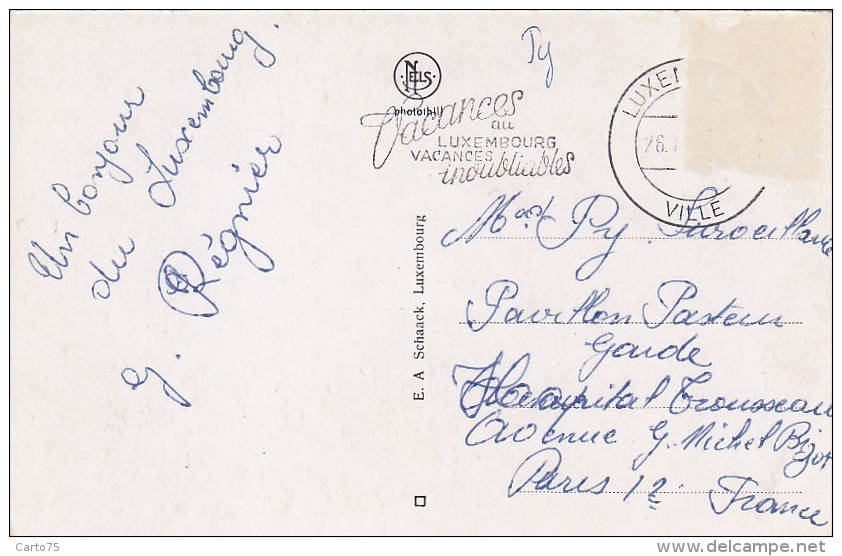 Un bonjour
du Luxembourg.
G. Régnier
Py
NELS
photothill
Vacances
au
LUXEMBOURG
VACANCES
inoubliables
LUXEM
26.
VILLE
E. A Schaack, Luxembourg
Py. Surveillante
Pavillon Pasteur
Garde
Hôpital Trousseau
Avenue G. Michel Bizot
Paris 12e
France
Carto75
delcampe.net